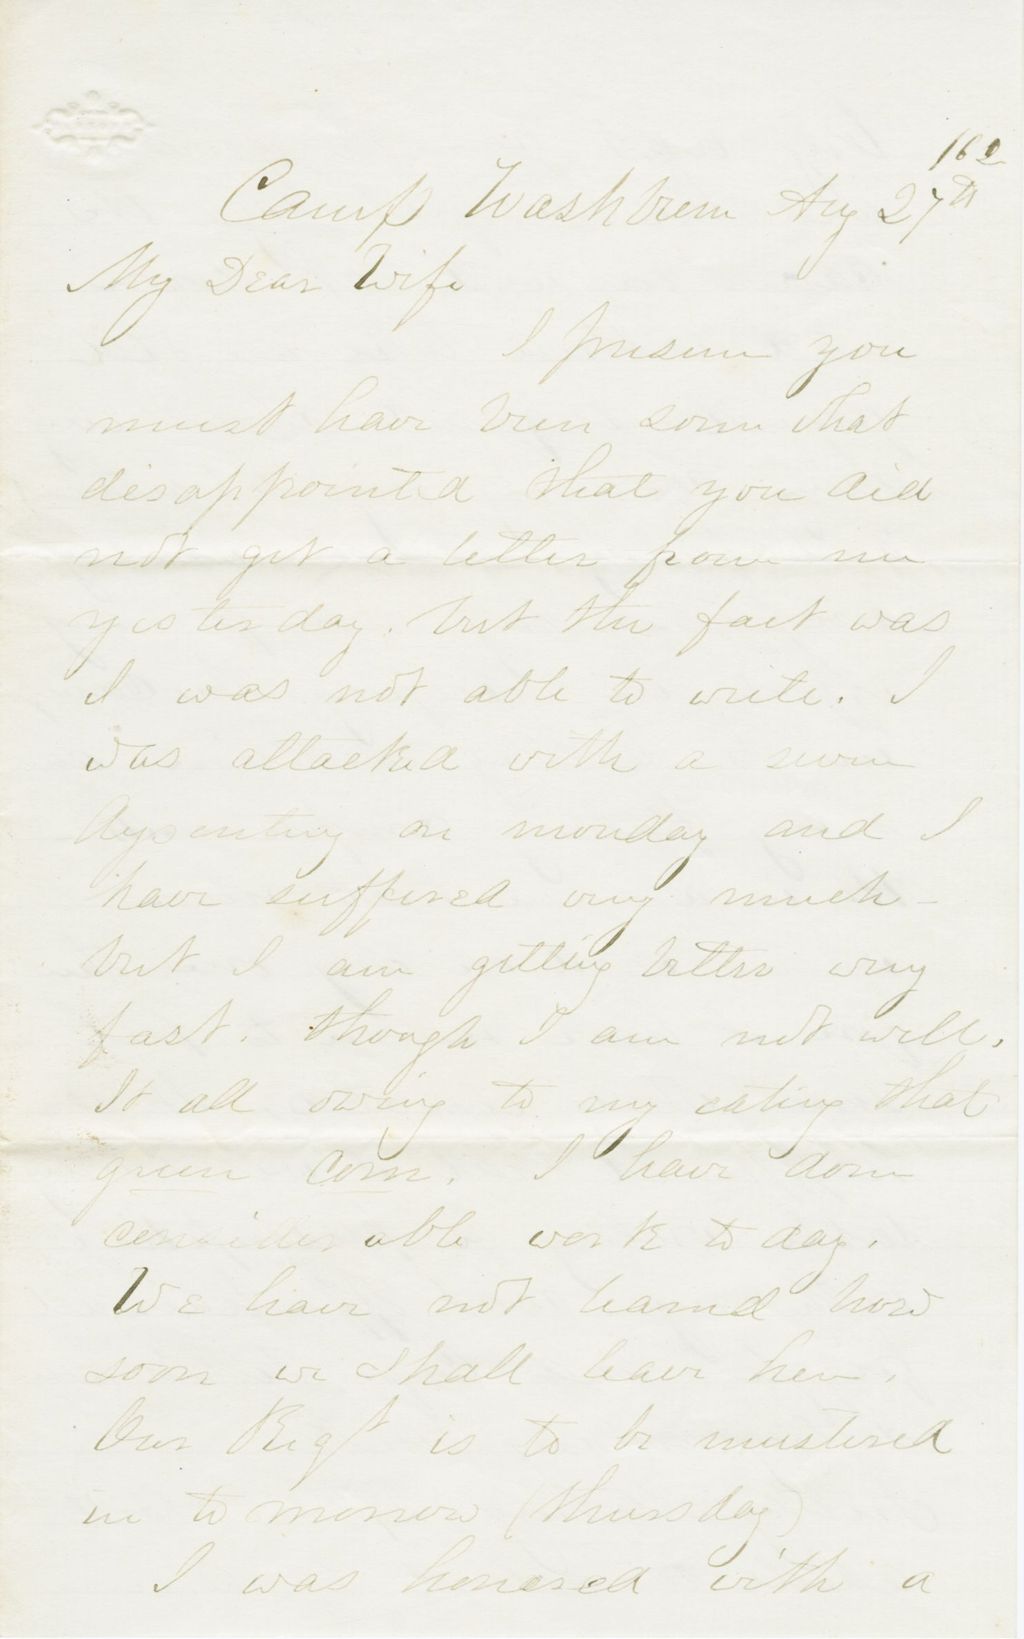 162
Camp Washburn Aug 27th
My Dear Wife
I presume you
must have been some what
disappointed that you did
not get a letter from me
yesterday. but the fact was
I was not able to write. I
was attacked with a severe
dysentery on monday and I
have suffered very much -
but I am getting better very
fast. though I am not well.
It all owing to my eating that
green corn. I have done
considerable work to day.
We have not learned how
soon we shall leave here.
Our Regt is to be mustered
in to morrow (thursday)
I was honored with a